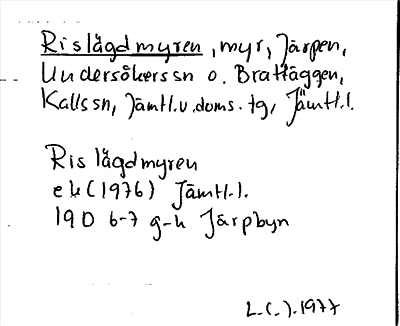 Rislägdmyren, myr, Järpen,
Undersåkers sn o. Brattäggen,
Kalls sn, Jämtl.v.doms. tg, Jämtl.l.
Ris lägdmyren
ek (1976) Jämtl.l.
19D 6-7 g-h Järpbyn
L.(-).1977